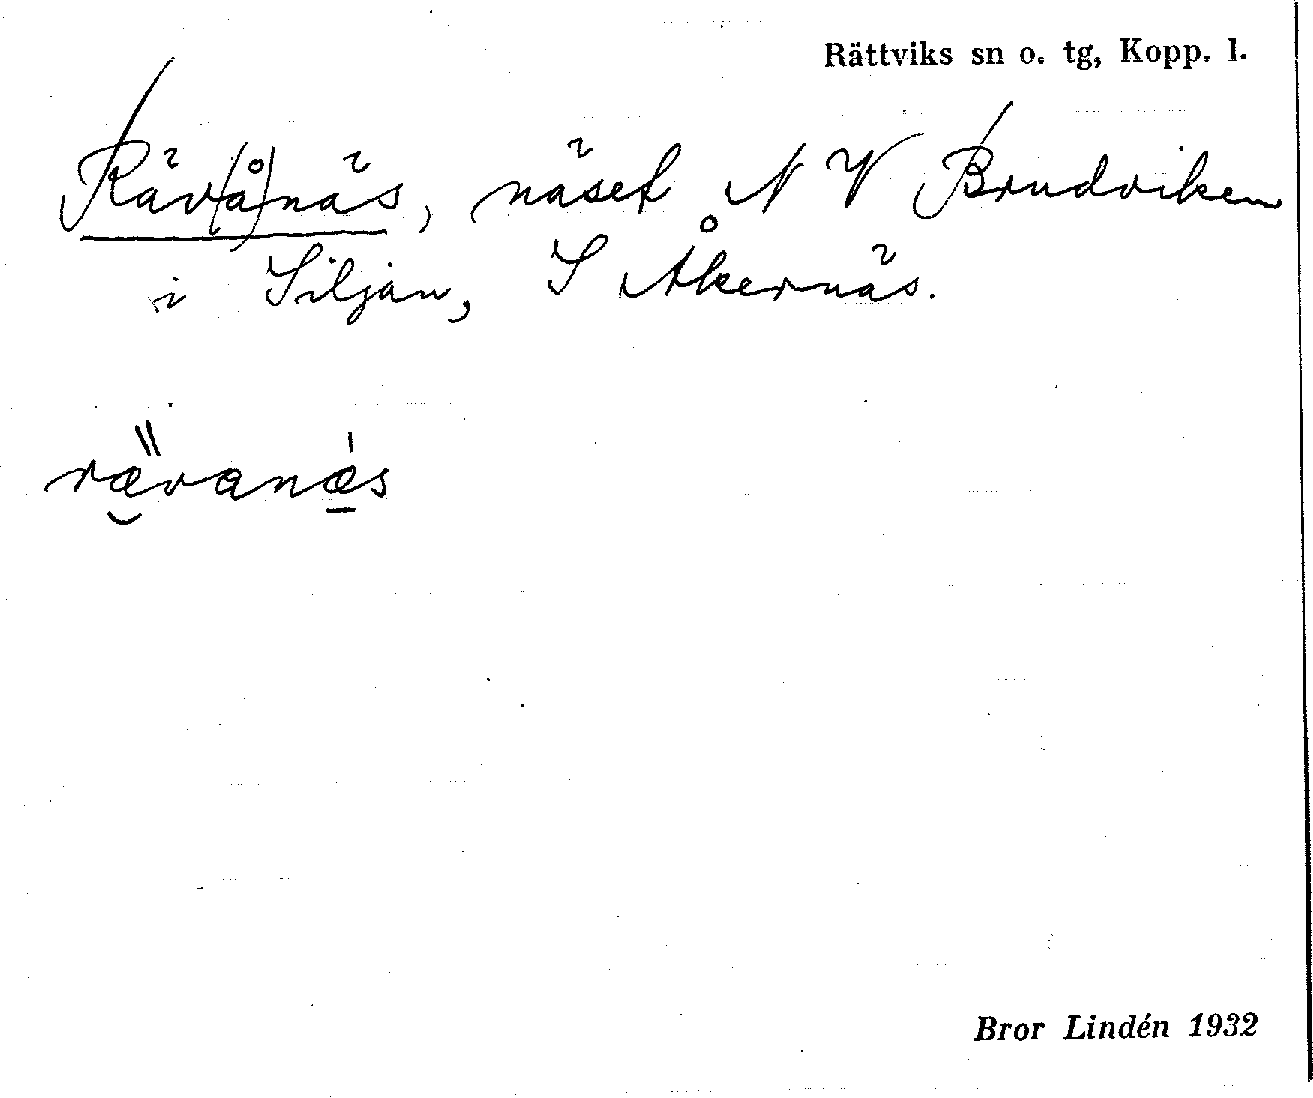 Rättviks sn o. tg, Kopp. l.
Räv(å)näs, näset N V Brudviken
i Siljan, S Åkernäs.
rævanæs
Bror Lindén 1932